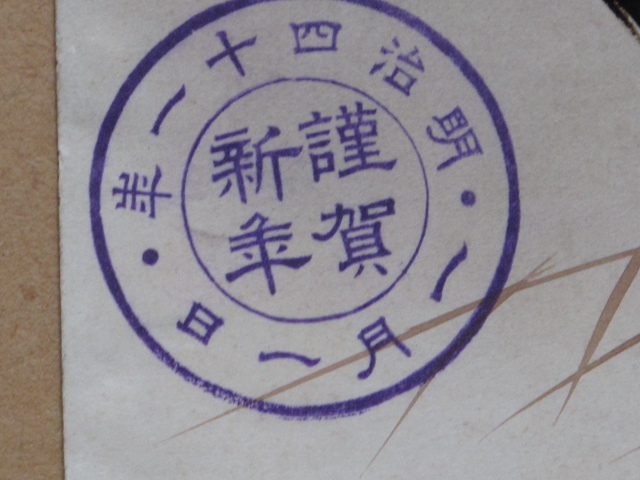 明治四十一年
一月一日
謹賀
新年